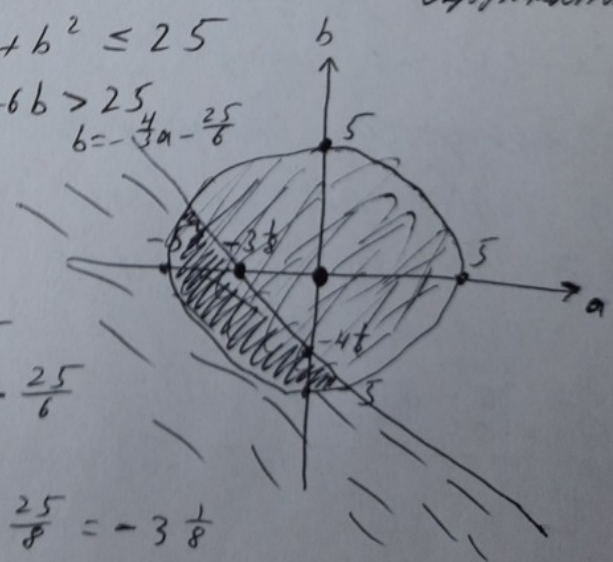 + b² ≤ 25
-6b > 25
b = -4/3 a - 25/6
b
5
-5
-3 1/8
5
a
-4 1/6
5
- 25/6
25/8 = -3 1/8